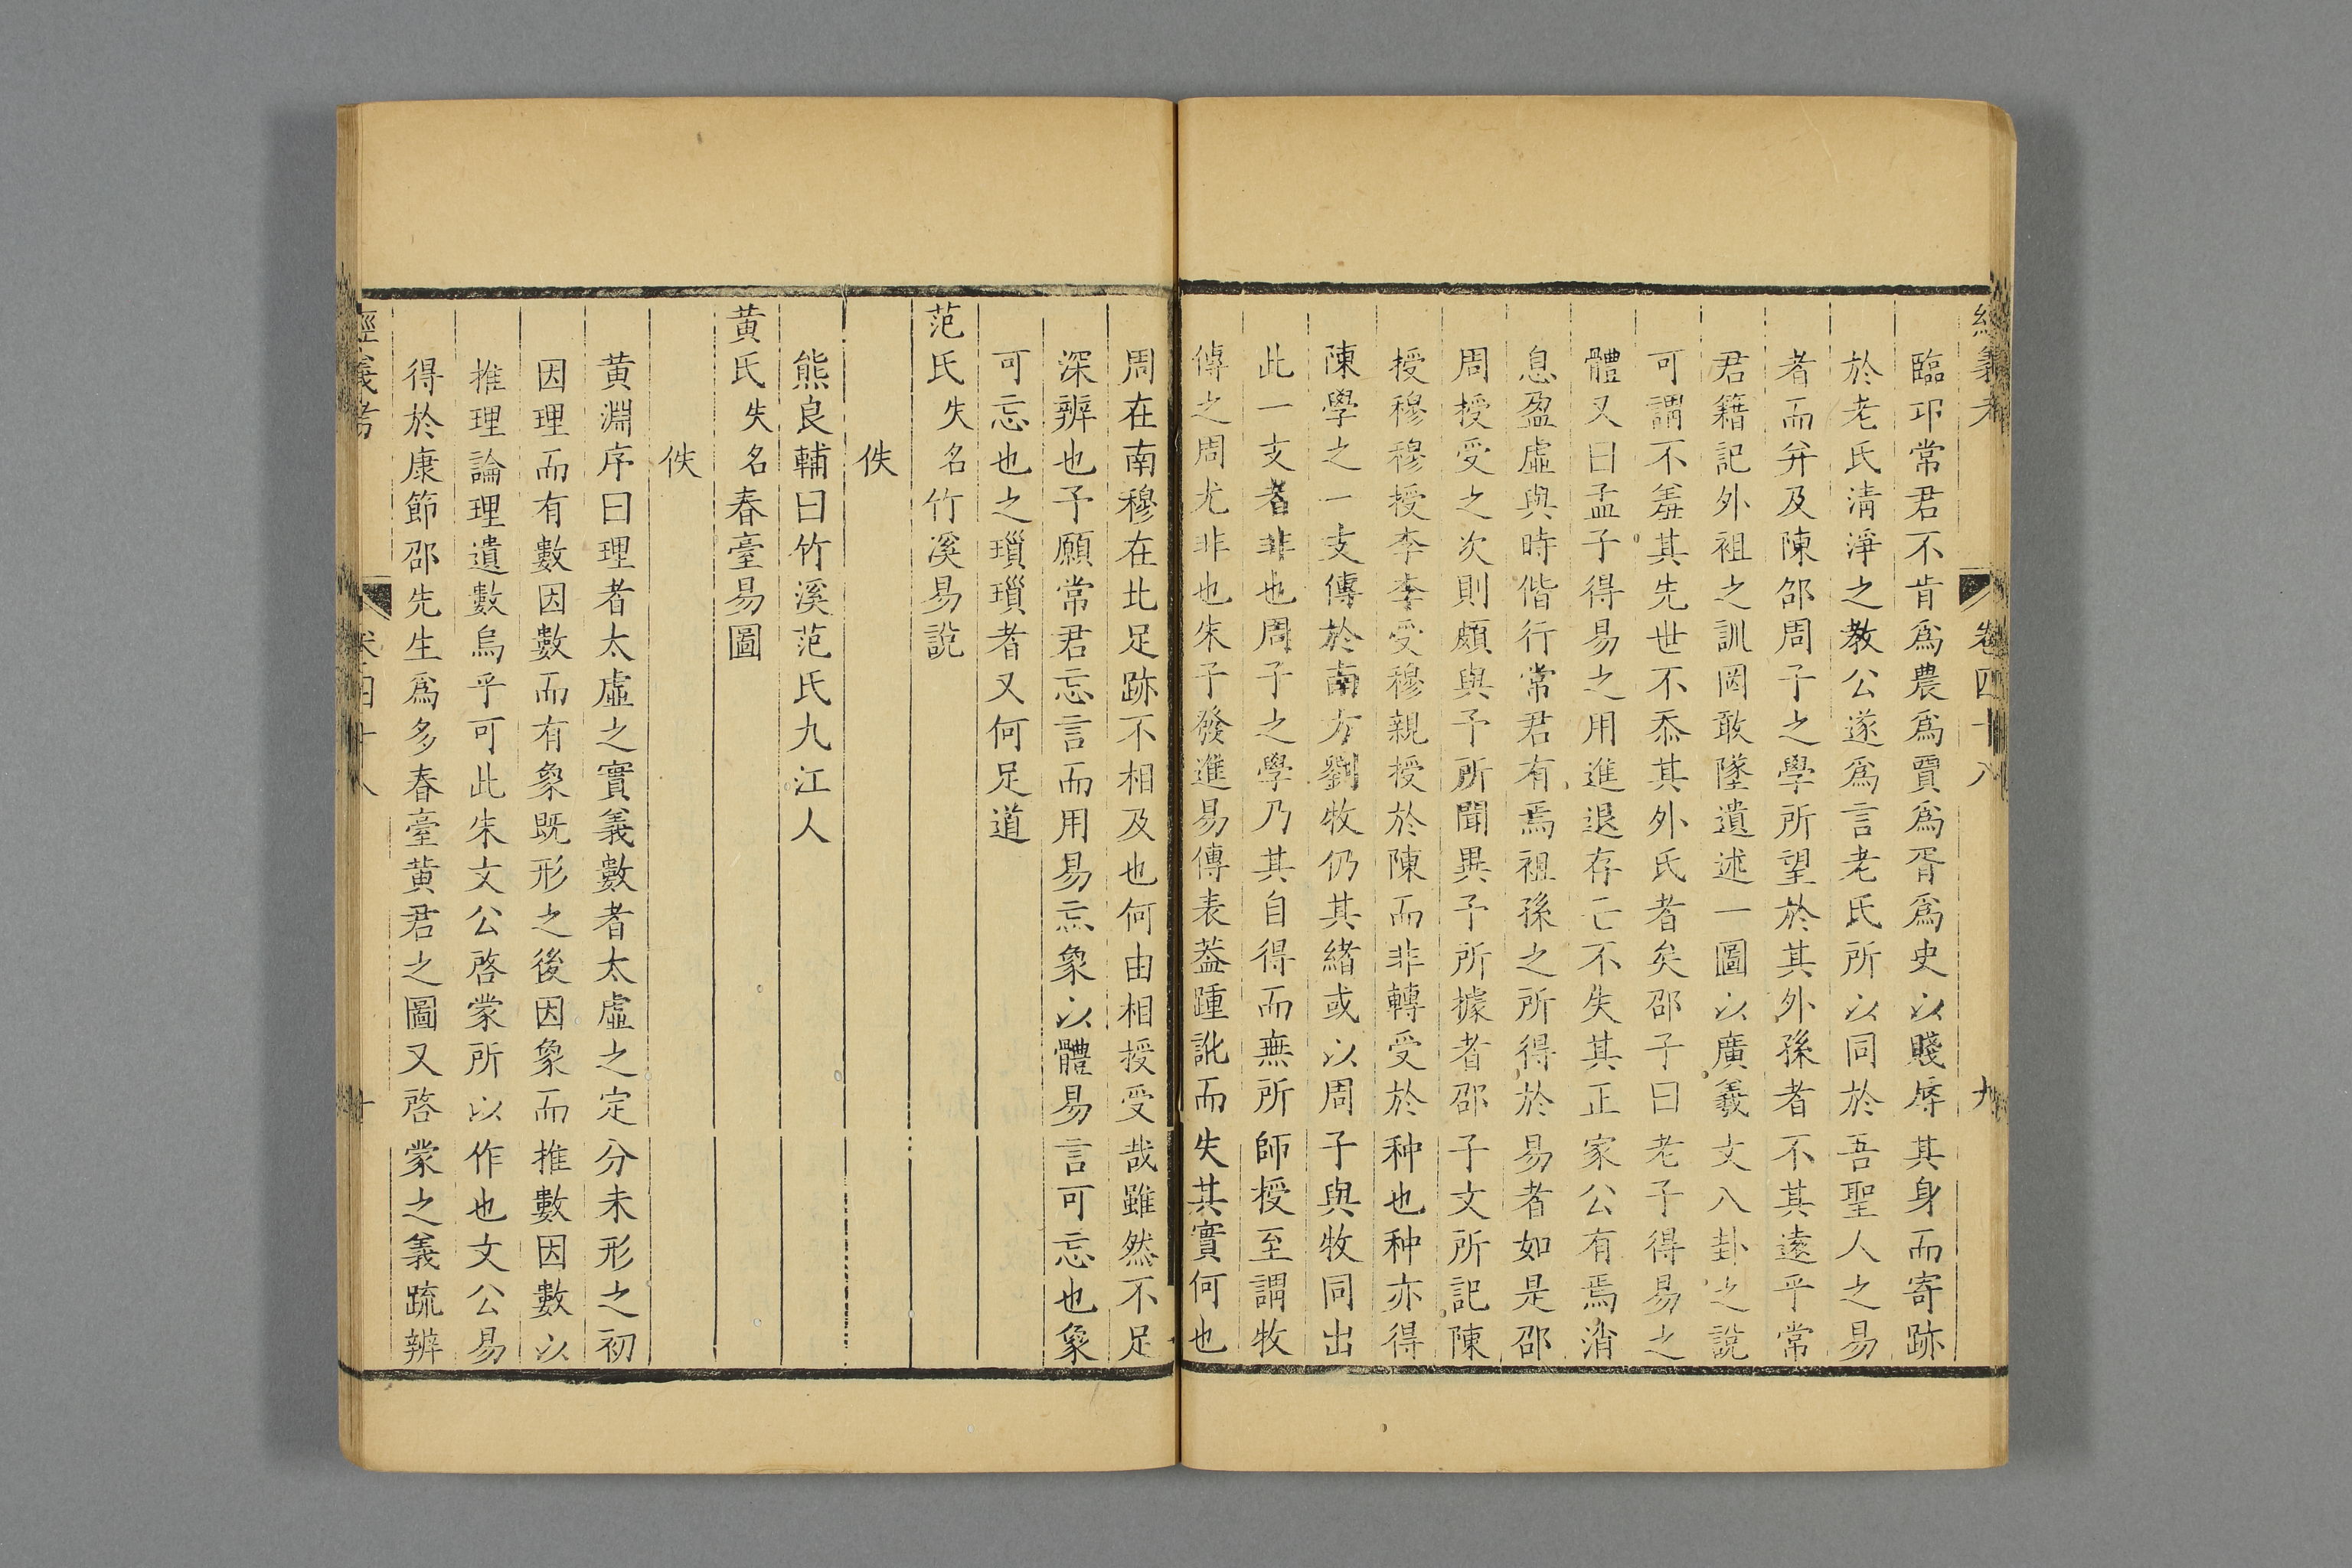 經義考 卷四十八 九
臨邛常君不肯爲農爲賈爲胥爲史以賤辱其身而寄跡
於老氏淸淨之敎公遂爲言老氏所以同於吾聖人之易
者而并及陳邵周子之學所望於其外孫者不其遠乎常
君籍記外祖之訓罔敢墜遺述一圖以廣羲文八卦之說
可謂不羞其先世不忝其外氏者矣邵子曰老子得易之
體又曰孟子得易之用進退存亡不失其正家公有焉消
息盈虛與時偕行常君有焉祖孫之所得於易者如是邵
周授受之次則頗與予所聞異予所據者邵子文所記陳
授穆穆授李李受穆親授於陳而非轉受於种也种亦得
陳學之一支傳於南方劉牧仍其緒或以周子與牧同出
此一支者非也周子之學乃其自得而無所師授至謂牧
傳之周尤非也朱子發進易傳表蓋踵訛而失其實何也
周在南穆在北足跡不相及也何由相授受哉雖然不足
深辨也予願常君忘言而用易忘象以體易言可忘也象
可忘也之瑣瑣者又何足道
范氏失名竹溪易說
佚
熊良輔曰竹溪范氏九江人
黃氏失名春臺易圖
佚
黃淵序曰理者太虛之實義數者太虛之定分未形之初
因理而有數因數而有象既形之後因象而推數因數以
推理論理遺數烏乎可此朱文公啓蒙所以作也文公易
得於康節邵先生爲多春臺黃君之圖又啓蒙之義疏辨
經義考 卷四十八 十